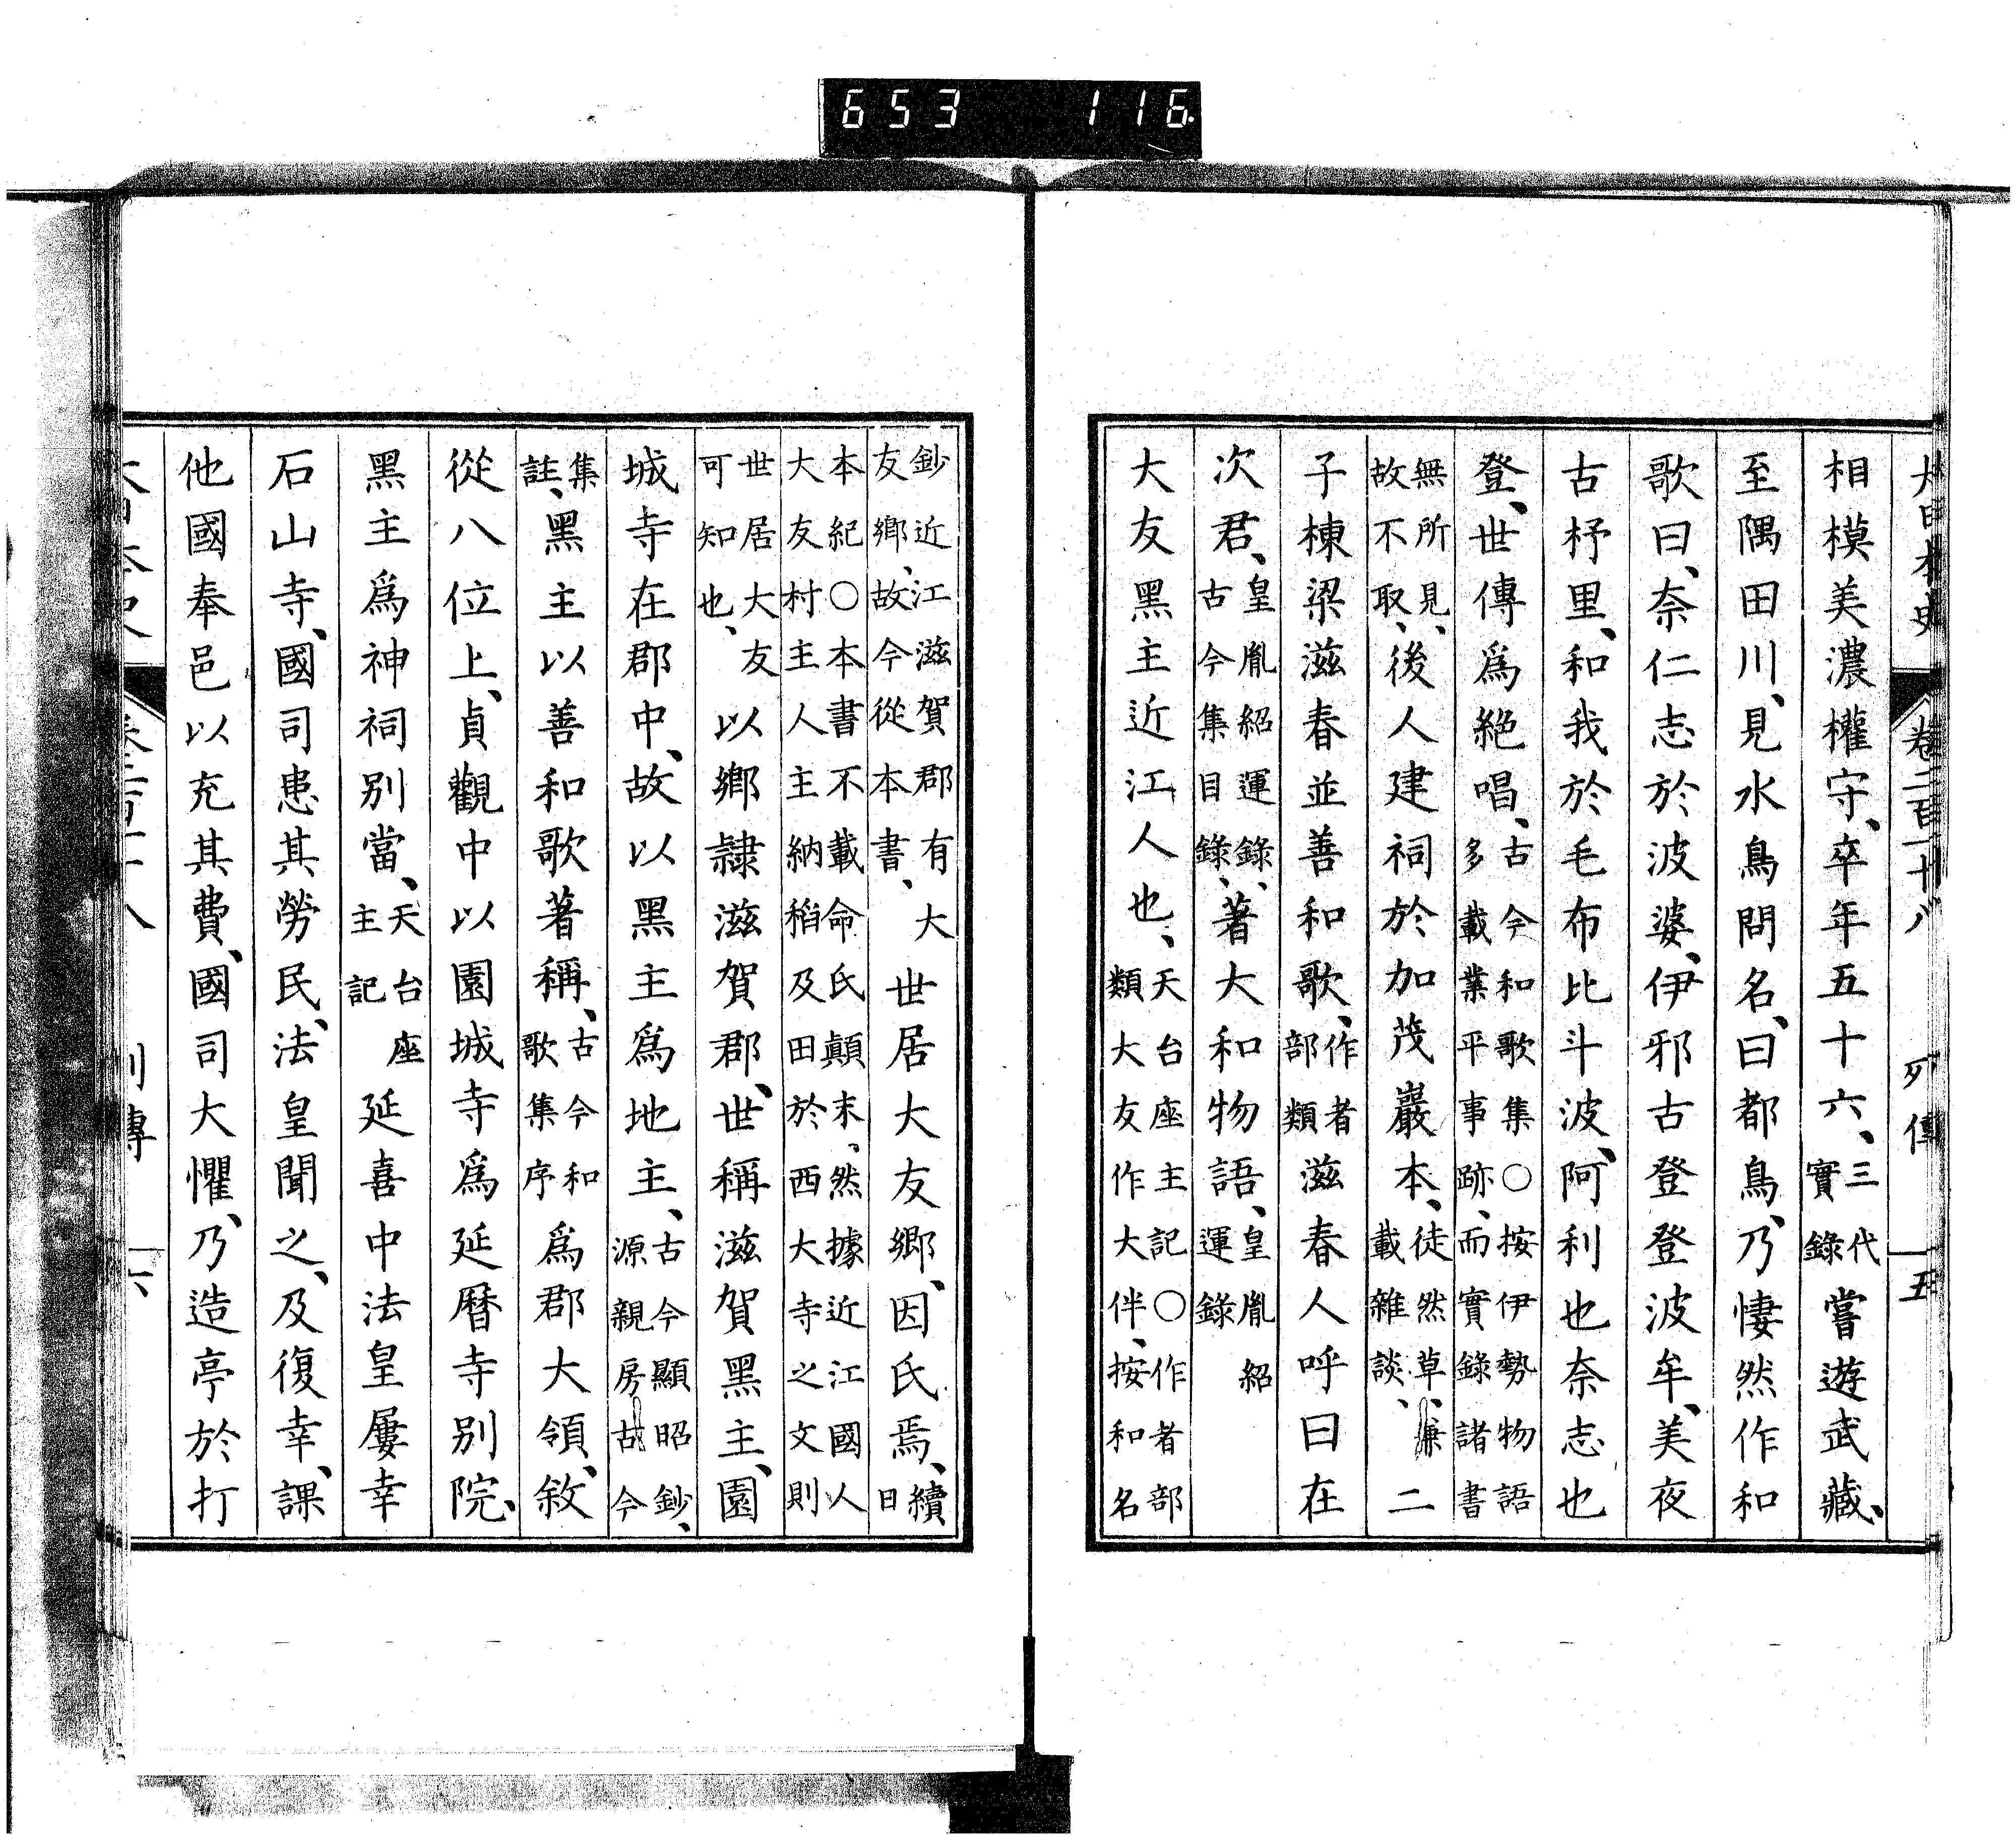 653 116.
大日本史 卷二百二十八 列傳 一五
相模美濃權守、卒年五十六、三代實錄嘗遊武藏、
至隅田川、見水鳥問名、曰都鳥、乃悽然作和
歌曰、奈仁志於波婆、伊邪古登登波牟、美夜
古杼里、和我於毛布比斗波、阿利也奈志也
登、世傳爲絶唱、古今和歌集○按伊勢物語多載業平事跡、而實錄諸書
無所見、故不取、後人建祠於加茂巖本、徒然草、兼載雜談、二
子棟梁滋春並善和歌、作者部類滋春人呼曰在
次君、皇胤紹運錄、古今集目錄、著大和物語、皇胤紹運錄
大友黑主近江人也、天台座主記○作者部類大友作大伴、按和名
鈔近江滋賀郡有大友鄉、故今從本書、世居大友鄉、因氏焉、續日
本紀○本書不載命氏顛末、然據近江國人大友村主人主納稻及田於西大寺之文則
世居大友可知也、以鄉隷滋賀郡、世稱滋賀黑主、園
城寺在郡中、故以黑主爲地主、古今顯昭鈔、源親房古今
集註、黑主以善和歌著稱、古今和歌集序爲郡大領、敘
從八位上、貞觀中以園城寺爲延曆寺別院、
黑主爲神祠別當、天台座主記延喜中法皇屢幸
石山寺、國司患其勞民、法皇聞之、及復幸、課
他國奉邑以充其費、國司大懼、乃造亭於打